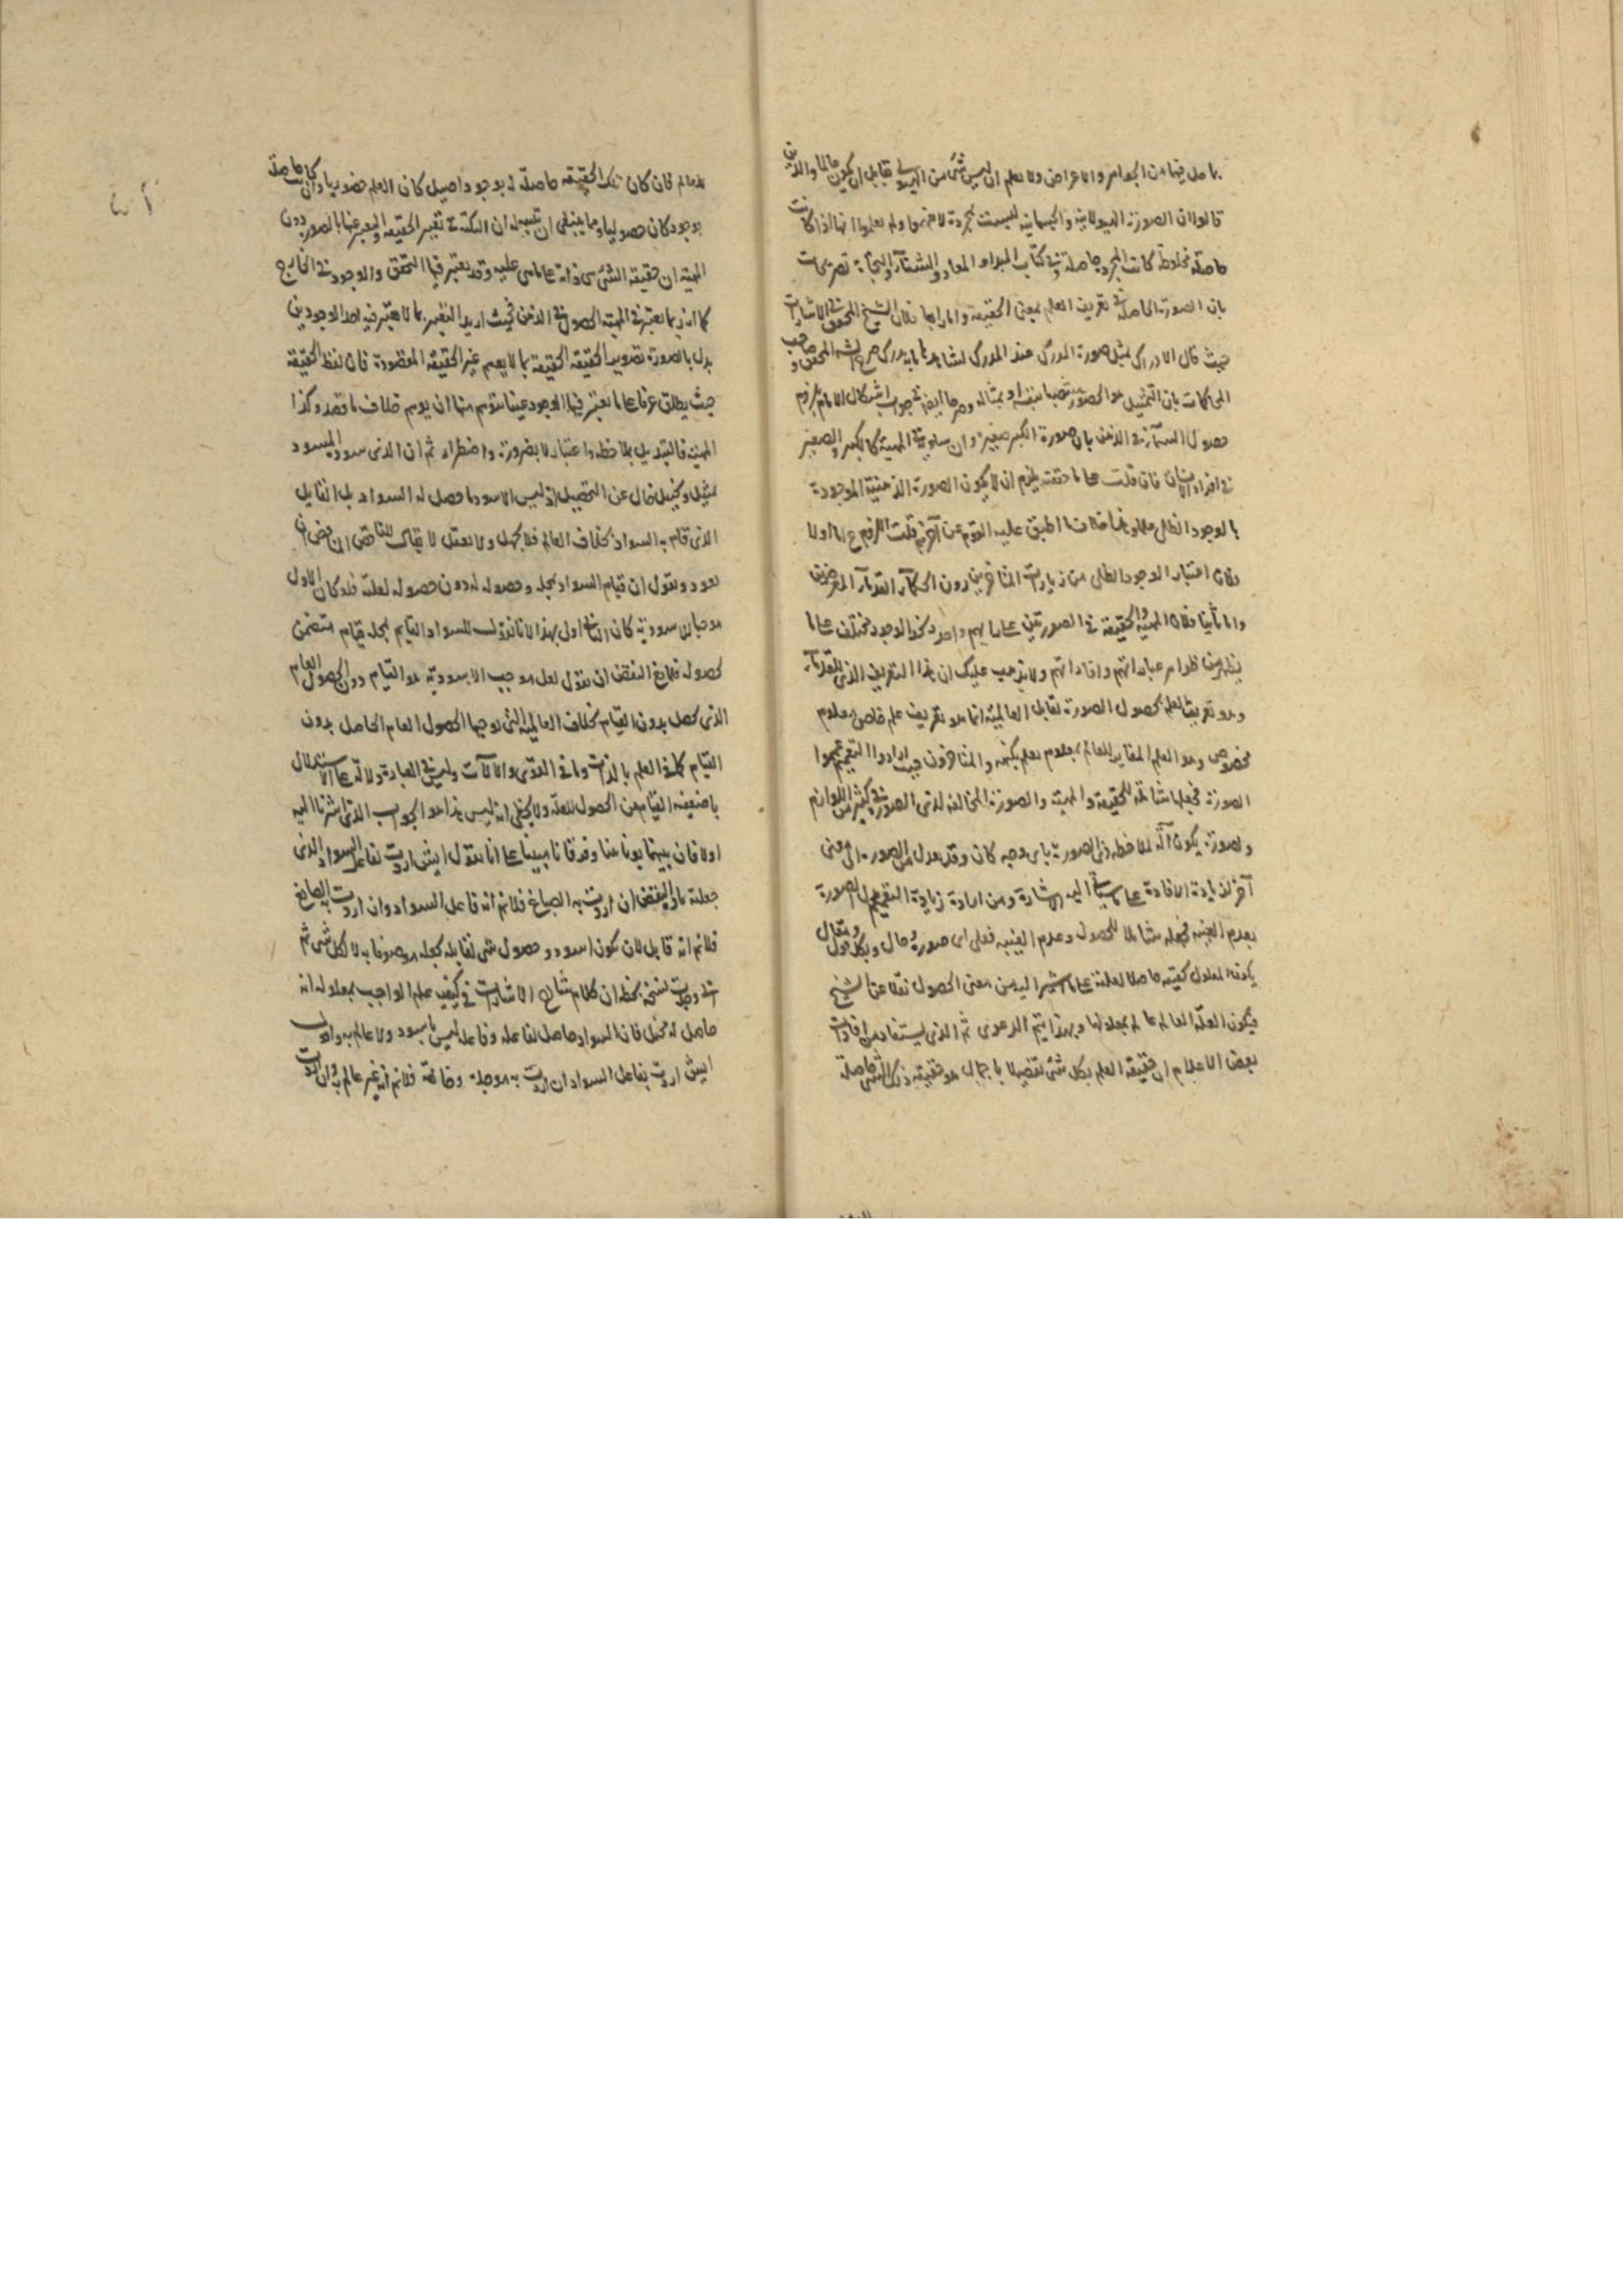 ما حل فيها من الجواهر والاعراض ولا نعلم ان ليس شئ من الهيولى قابل ان يكون عالما والذين
قالوا ان الصورة الهيولانية والجسمانية ليست مجردة ولم يعلموا انها اذا كانت
حاصلة مخلوطة كانت المجرد حاصلة وفي كتاب المبدأ والمعاد والشفاء والنجاة تصريحات
بان الصورة الحاصلة في تعريف العلم بمعنى الحقيقة واما رابعا فلان الشيخ المحقق في الاشارات
حيث قال الادراك تمثل صورة المدرك عند المدرك يشاهدها ما به يدرك صرح المحقق وصاحب
المحاكمات بان التمثيل هو الحضور بنفسه او بمثاله وصرحا ايضا في جواب اشكال الامام بلزوم
حصول السماء في الذهن بان صورة الكبير صغيرة وان ساوية في المهية كالكبير والصغير
في افراد الانسان فان قلت على ما حققته يلزم ان لا يكون الصورة الذهنية الموجودة
بالوجود الظلي علما وهذا خلاف ما اطبق عليه القوم عن آخرهم قلت اللزوم ع اما اولا
فلان اعتبار الوجود الظلي من زيادات المتأخرين دون الحكماء القدماء المعرفين
واما ثانيا فلان المهية والحقيقة في الصورتين على ما هم واحد وكذا الوجود مختلف على ما
يظهر من ظواهر عباراتهم وافاداتهم ولا يذهب عليك ان هذا التعريف الذي للقدماء
وهو تعريف العلم بحصول الصورة تقابل العالمية انما هو تعريف علم خاص بمعلوم
مخصوص وهو العلم المغاير للعالم بمعلوم يعلم بكنهه والمتأخرون حيث ارادوا التعميم عمموا
الصورة فجعلها شاملة للحقيقة والمهية والصورة المخالفة لذي الصورة في كثير من اللوازم
ولصورة يكون آلة لملاحظة ذي الصورة باي وجه كان وقد يعدل من الصورة الى معنى
آخر لزيادة الافادة على ما سيأتي اليه الاشارة ومن ارادة زيادة التعميم الصورة
بعدم الغيبة فجعله شاملا للحصول وعدم الغيبة فعلى اي صورة وحال وبكل قول ومقال
يكون المعلول كنهه حاصلا لعلته على ما اشير اليه من معنى الحصول نقلا عن الشيخ
فيكون العلة العالم عالم بمعلولها وبهذا يتم الدعوى ثم الذي يستفاد من افادات
بعض الاعلام ان حقيقة العلم بكل شئ تفصيلا باجمال هو حقيقة ذلك الشئ حاصلة
للعالم فان كان تلك الحقيقة حاصلة له بوجود اصيل كان العلم حضوريا وان كانت حاصلة
بوجود كان حصوليا ومما ينبغي ان تنبه له ان النكتة في تغيير الحقيقة والتعبير عنها بالصورة دون
المهية ان حقيقة الشئ هي ذاته على ما هي عليه وقد يعتبر فيها التحقق والوجود في الخارج
كما انه ربما يعتبر في المهية الحصول في الذهن فحيث اريد التغيير بما لا يعتبر فيه احد الوجودين
بدل بالصورة الحقيقة بما لا يعم غير الحقيقة المقصودة فان لفظ الحقيقة
حيث يطلق عرفا على ما يعتبر فيها الوجود عينا يتوهم منها ان يوهم خلاف ما قصد وكذا
المهية فالتبديل بملاحظة واعتبار لا بضرورة واضطرار ثم ان الذي سود المسود
تمثيل وتخييل خال عن التحصيل اذ ليس الاسود ما حصل له السواد بل القابل
الذي قام به السواد بخلاف العالم فلا تجهل ولا تغفل لا يقال للناقض ان
يعود ويقول ان قيام السواد بمحله وحصوله له دون حصوله لعلته فلو كان الاول
موجبا للاسودية كان الثاني اولى بهذا لانا نقول السواد القايم بمحله قيام متضمن
لحصوله فلا يمنع النقض ان نقول لعل موجب الاسودية هو القيام دون الحصول العام
الذي يحصل بدون القيام بخلاف العالمية التي يوجبها الحصول العام الحاصل بدون
القيام كما في العلم بالذات وما في القوى والآلات وليس في العبارة دلالة على الاستدلال
باضعفية القيام من الحصول للعلة ولا يخفى انه ليس هذا هو الجواب الذي اشرنا اليه
اولا فان بينهما بونا بينا وفرقانا مبينا على انا نقول ايش اردت بفاعل السواد الذي
جعلته مادة النقض ان اردت به الصباغ فلا نم انه فاعل السواد وان اردت به الصانع
فلا نم انه قابل لان يكون اسود وحصول شئ لقابله يجعله موصوفا به لا لكل شئ ثم
اني وجدت نسخة بخطه ان كلام شارح الاشارات في كيفية علم الواجب بمعلوله انه
حاصل له مختل فان السواد حاصل لفاعله وفاعله ليس باسود ولا عالم به واقول
ايش اردت بفاعل السواد ان اردت به موجده وخالقه فلا نم انه غير عالم به وان اردت